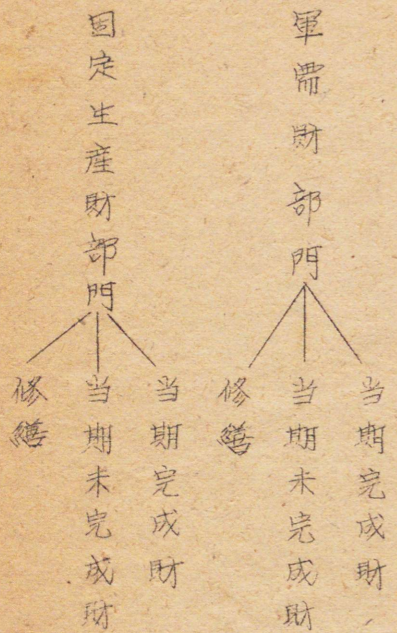 軍需財部門
当期完成財
当期未完成財
修繕
固定生産財部門
当期完成財
当期未完成財
修繕